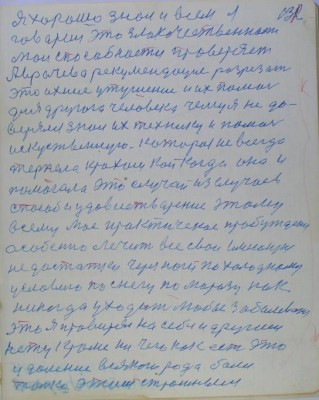 Я хорошо знаю и всем
говорил это злокачественност
мои способности проверяет
рекомендацие разрезат
это ихние утушение и их помог
для другога человека чему я не до-
верял знаю их технику и помог
искуственную. Которая не всегда
терпела крахом кой когда она и
помогала это случай из случаев
способ и удовиетварение этому
всему мое практическое пробуждени
особенно лечит все свои
недостатки через ноги по холодному
условию по снегу по морозу как
никогда уходят любые заболевани
это я проверял на себе и другим
нету кроме ни чего как ест. Это
удоление всякого рода боли
только этим